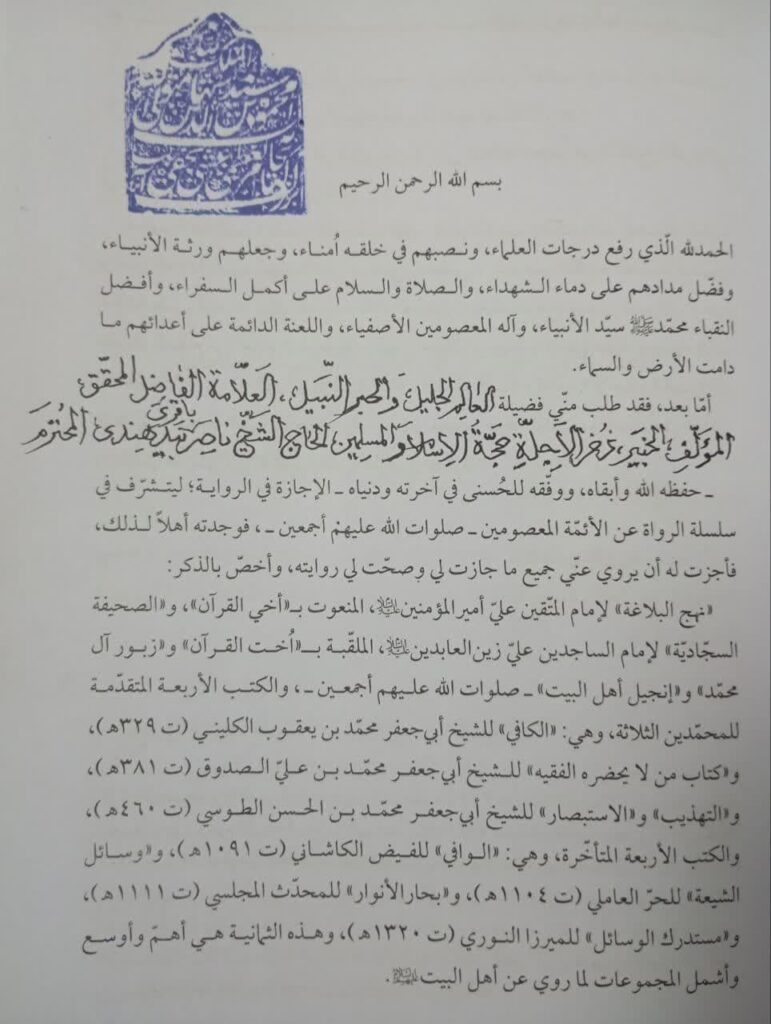 بسم الله الرحمن الرحيم
الحمدلله الّذي رفع درجات العلماء، ونصبهم في خلقه اُمناء، وجعلهم ورثة الأنبياء،
وفضّل مدادهم على دماء الشهداء، والصلاة والسلام على أكمل السفراء، وأفضل
النقباء محمّدﷺ سيّد الأنبياء، وآله المعصومين الأصفياء، واللعنة الدائمة على أعدائهم ما
دامت الأرض والسماء.
أمّا بعد، فقد طلب منّي فضيلة العالم الجليل والحبر النّبيل، العلّامة الفاضل المحقّق
المؤلّف الخبير، فخر الأجلّة حجّة الإسلام والمسلمين الحاج الشّيخ ناصر باقري هندي المحترم
ـ حفظه الله وأبقاه، ووفّقه للحُسنى في آخرته ودنياه ـ الإجازة في الرواية؛ ليتشرّف في
سلسلة الرواة عن الأئمّة المعصومين ـ صلوات الله عليهم أجمعين ـ، فوجدته أهلاً لذلك،
فأجزت له أن يروي عنّي جميع ما جازت لي وصحّت لي روايته، وأخصّ بالذكر:
«نهج البلاغة» لإمام المتّقين عليّ أمير المؤمنين عليه السلام، المنعوت بـ«أخي القرآن»، و«الصحيفة
السجّاديّة» لإمام الساجدين عليّ زين العابدين عليه السلام، الملقّبة بـ«اُخت القرآن» و«زبور آل
محمّد» و«إنجيل أهل البيت» ـ صلوات الله عليهم أجمعين ـ، والكتب الأربعة المتقدّمة
للمحمّدين الثلاثة، وهي: «الكافي» للشيخ أبي‌جعفر محمّد بن يعقوب الكليني (ت ٣٢٩هـ)،
و«كتاب من لا يحضره الفقيه» للشيخ أبي‌جعفر محمّد بن عليّ الصدوق (ت ٣٨١هـ)،
و«التهذيب» و«الاستبصار» للشيخ أبي‌جعفر محمّد بن الحسن الطوسي (ت ٤٦٠هـ)،
والكتب الأربعة المتأخّرة، وهي: «الوافي» للفيض الكاشاني (ت ١٠٩١هـ)، و«وسائل
الشيعة» للحرّ العاملي (ت ١١٠٤هـ)، و«بحار الأنوار» للمحدّث المجلسي (ت ١١١١هـ)،
و«مستدرك الوسائل» للميرزا النوري (ت ١٣٢٠هـ)، وهذه الثمانية هي أهمّ وأوسع
وأشمل المجموعات لما روي عن أهل البيت عليهم السلام.